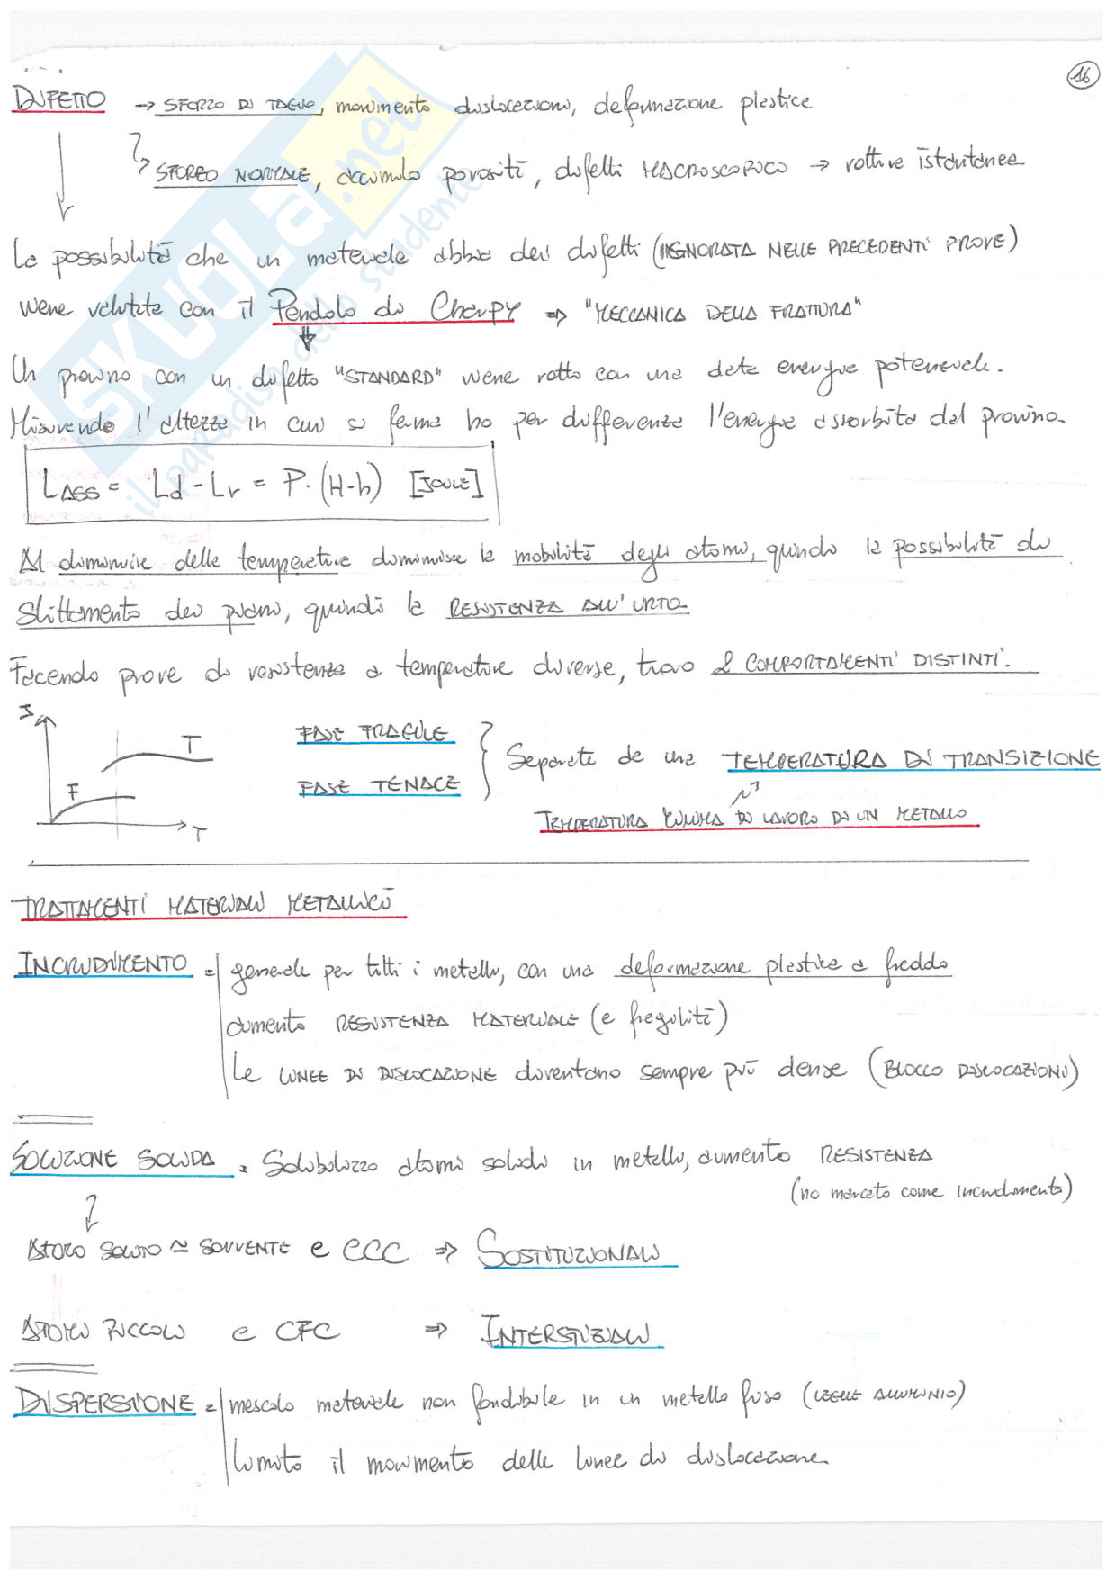 16
DIFETTO → SFORZO DI TAGLIO, movimento dislocazioni, deformazione plastica
SFORZO NORMALE, accumulo porosità, difetti MACROSCOPICO → rottura istantanea
La possibilità che un materiale abbia dei difetti (IGNORATA NELLE PRECEDENTI PROVE)
viene valutata con il Pendolo di CharPY ⇒ "MECCANICA DELLA FRATTURA"
Un provino con un difetto "STANDARD" viene rotto con una data energia potenziale.
Misurando l'altezza in cui si ferma ho per differenza l'energia assorbita dal provino.
LASS = Ld - Lr = P. (H-h) [JOULE]
Al diminuire della temperatura diminuisce la mobilità degli atomi, quindi la possibilità di
slittamento dei piani, quindi la RESISTENZA ALL'URTO
Facendo prove di resistenza a temperature diverse, trovo 2 COMPORTAMENTI DISTINTI.
J
T
F
T
FASE FRAGILE
FASE TENACE
Separate da una TEMPERATURA DI TRANSIZIONE
TEMPERATURA MINIMA DI LAVORO DI UN METALLO
TRATTAMENTI MATERIALI METALLICI
INCRUDIMENTO = generale per tutti i metalli, con una deformazione plastica a freddo
aumento RESISTENZA MATERIALE (e fragilità)
Le LINEE DI DISLOCAZIONE diventano sempre più dense (BLOCCO DISLOCAZIONI)
SOLUZIONE SOLIDA = Solubilizzo atomi solidi in metallo, aumento RESISTENZA
(no marcato come incrudimento)
ATOMO SOLUTO ≃ SOLVENTE e CCC ⇒ SOSTITUZIONALI
ATOMI PICCOLI e CFC ⇒ INTERSTIZIALI
DISPERSIONE = mescolo materiale non fondibile in un metallo fuso (LEGHE ALLUMINIO)
limito il movimento delle linee di dislocazione
SKUOLA.net
il paradiso dello studente